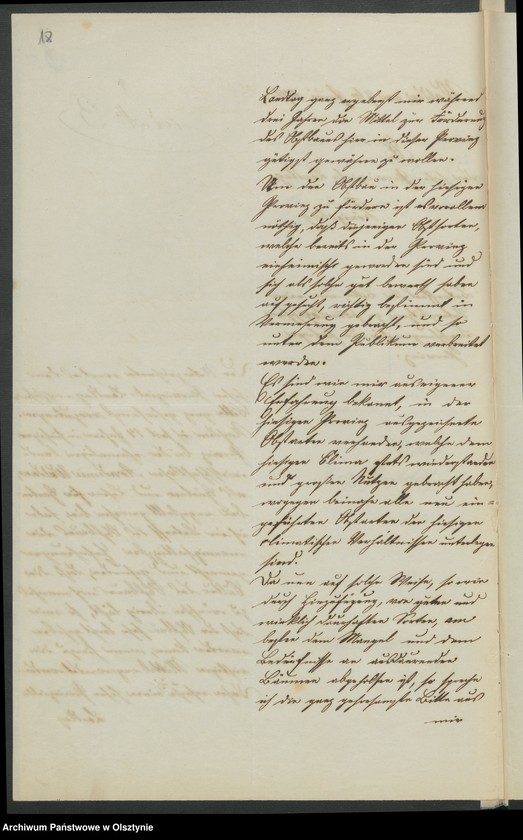 18
Landtag ganz ergebenst mir während
drei Jahren die Mittel zur Förderung
des Obstbaues hier in dieser Provinz
gütigst gewähren zu wollen.
Um den Obstbau in der hiesigen
Provinz zu fördern ist es vor allem
nöthig, daß diejenigen Obstsorten,
welche bereits in der Provinz
einheimisch geworden sind und
sich als solche gut bewährt haben
aufgesucht, richtig bestimmt in
Vermehrung gebracht, und so
unter dem Publikum verbreitet
werden.
Es sind wie mir aus eigener
Erfahrung bekannt, in der
hiesigen Provinz ausgezeichnete
Obstsorten vorhanden, welche dem
hiesigen Clima stets wiederstanden
und großen Nutzen gebracht haben,
wogegen beinahe alle neu ein=
geführten Obstsorten den hiesigen
climatischen Verhältnissen unterlegen
sind.
Da nun auf solche Weise, so wie
durch Hinzufügung, von guten und
wirklich dauerhaften Sorten, am
besten dem Mangel und dem
Bedürfnisse an ausdauernden
Bäumen abgeholfen ist, so spreche
ich die ganz gehorsamste Bitte aus
mir
Archiwum Państwowe w Olsztynie